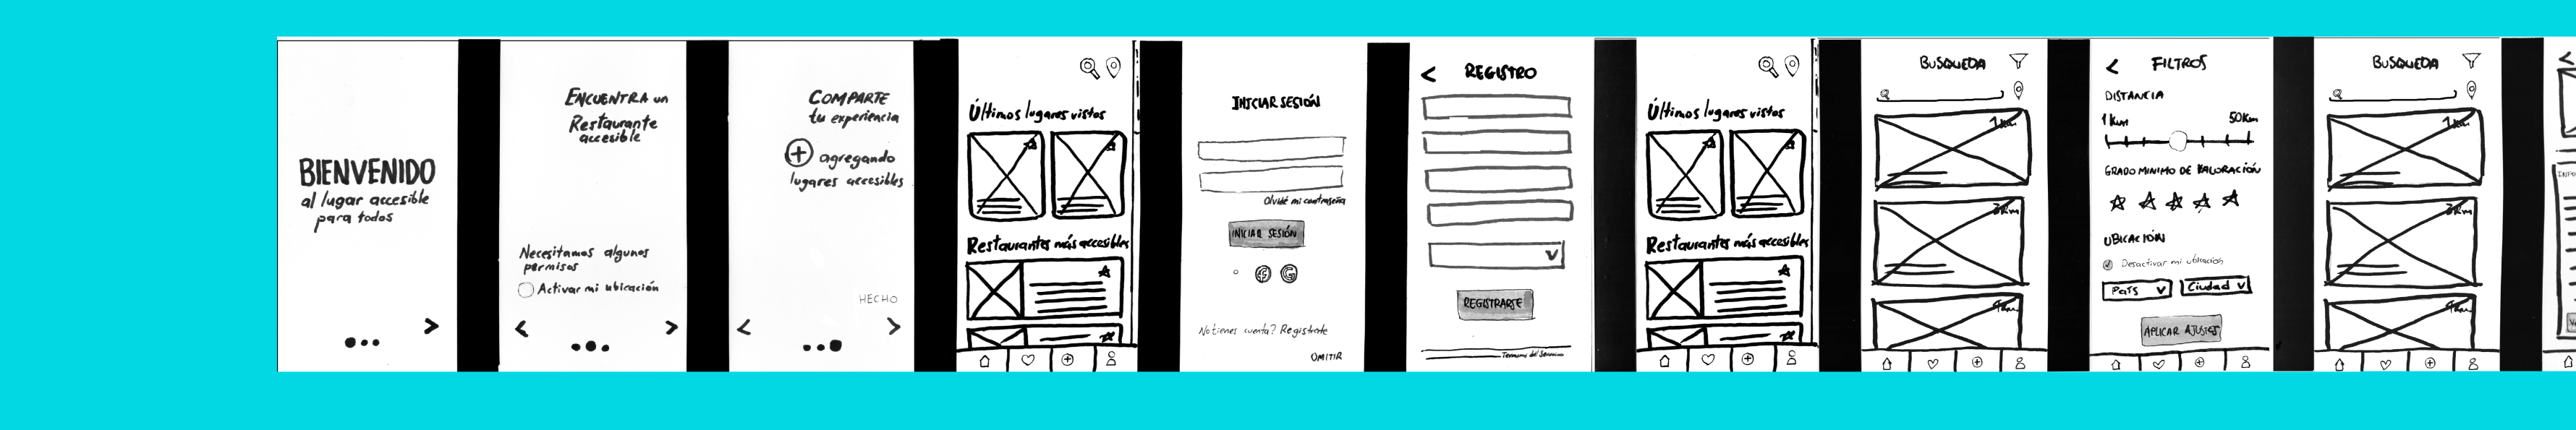 BIENVENIDO
al lugar accesible
para todos
ENCUENTRA un
Restaurante
accesible
Necesitamos algunos
permisos
Activar mi ubicación
COMPARTE
tu experiencia
agregando
lugares accesibles
HECHO
Últimos lugares vistos
Restaurantes más accesibles
INICIAR SESIÓN
Olvidé mi contraseña
INICIAR SESIÓN
G
No tienes cuenta? Registrate
OMITIR
REGISTRO
REGISTRARSE
Terminos del Servicio
Últimos lugares vistos
Restaurantes más accesibles
BUSQUEDA
1km
3km
FILTROS
DISTANCIA
1Km 50Km
GRADO MINIMO DE VALORACIÓN
UBICACIÓN
Desactivar mi ubicación
País Ciudad
APLICAR AJUSTES
BUSQUEDA
1km
3km